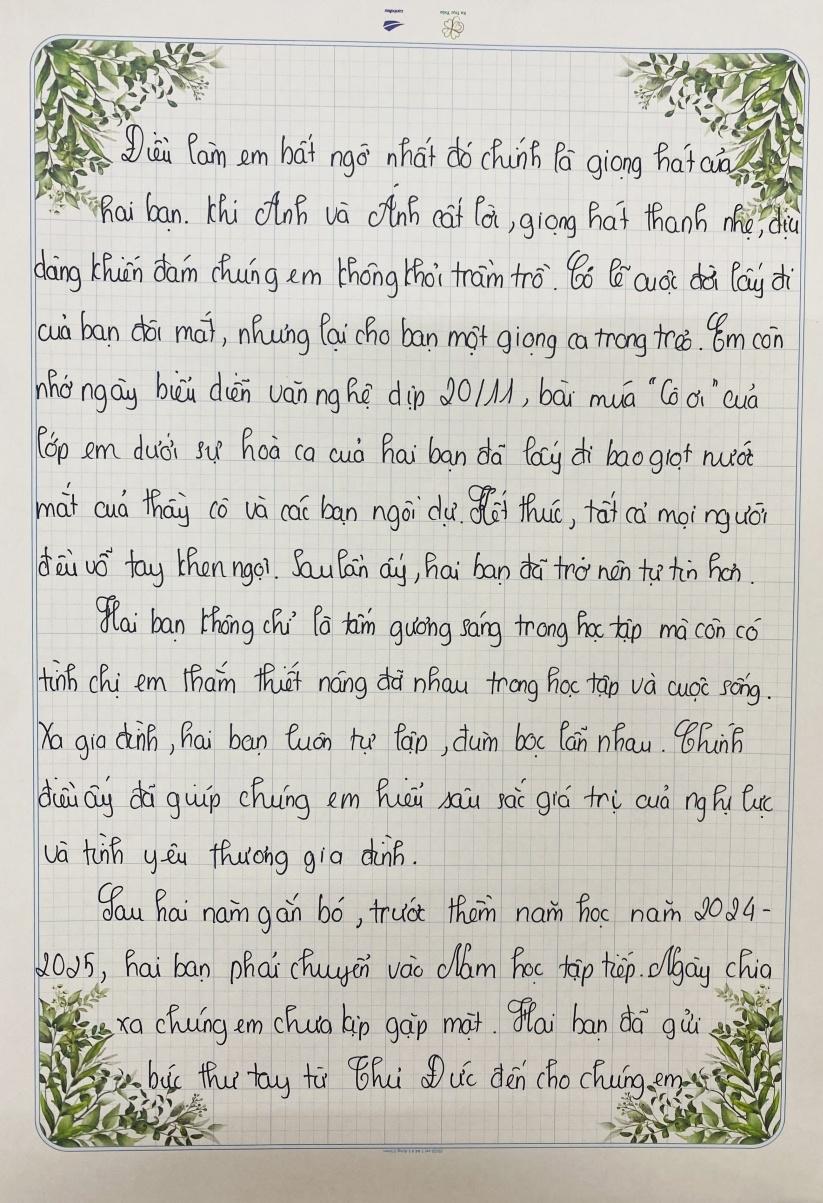 Điều làm em bất ngờ nhất đó chính là giọng hát của
hai bạn. Khi Anh và Ánh cất lời, giọng hát thanh nhẹ, dịu
dàng khiến đám chúng em không khỏi trầm trồ. Có lẽ cuộc đời lấy đi
của bạn đôi mắt, nhưng lại cho bạn một giọng ca trong trẻo. Em còn
nhớ ngày biểu diễn văn nghệ dịp 20/11, bài múa "Cô ơi" của
lớp em dưới sự hoà ca của hai bạn đã lấy đi bao giọt nước
mắt của thầy cô và các bạn ngồi dự. Kết thúc, tất cả mọi người
đều vỗ tay khen ngợi. Sau lần ấy, hai bạn đã trở nên tự tin hơn.
Hai bạn không chỉ là tấm gương sáng trong học tập mà còn có
tình chị em thắm thiết nâng đỡ nhau trong học tập và cuộc sống.
Xa gia đình, hai bạn luôn tự lập, đùm bọc lẫn nhau. Chính
điều ấy đã giúp chúng em hiểu sâu sắc giá trị của nghị lực
và tình yêu thương gia đình.
Sau hai năm gắn bó, trước thềm năm học năm 2024-
2025, hai bạn phải chuyển vào Nam học tập tiếp. Ngày chia
xa chúng em chưa kịp gặp mặt. Hai bạn đã gửi
bức thư tay từ Thủ Đức đến cho chúng em